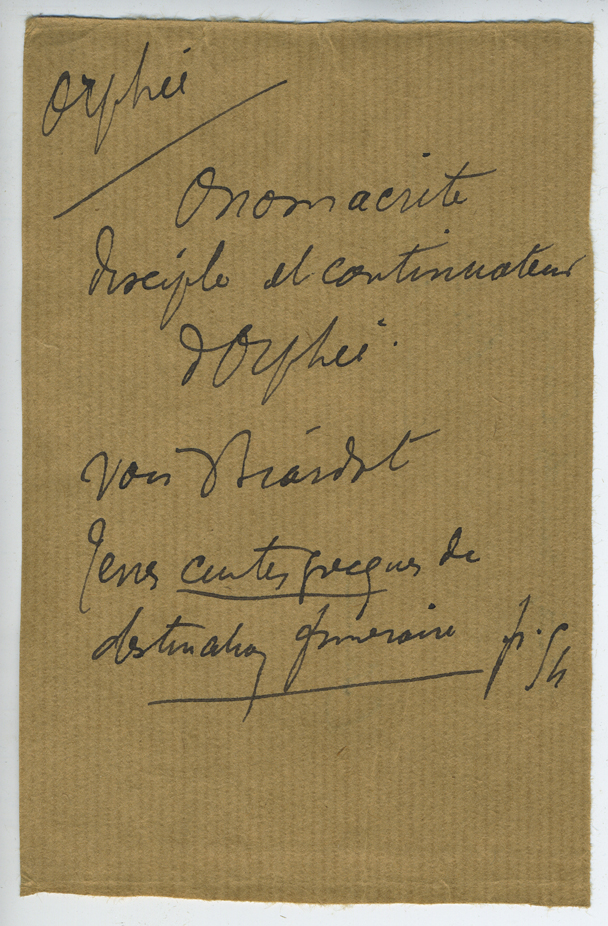 Orphée
Onomacrite
disciple et continuateur
d'Orphée.
voir Biardot
Terres cuites grecques de
destination funéraire p. 54